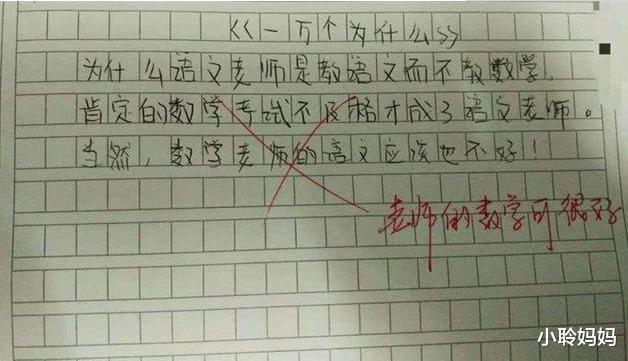 《一万个为什么》
为什么语文老师是教语文而不教数学，
肯定的数学考试不及格才成了语文老师。
当然，数学老师的语文应该也不好！
老师的数学可很好
小聆妈妈